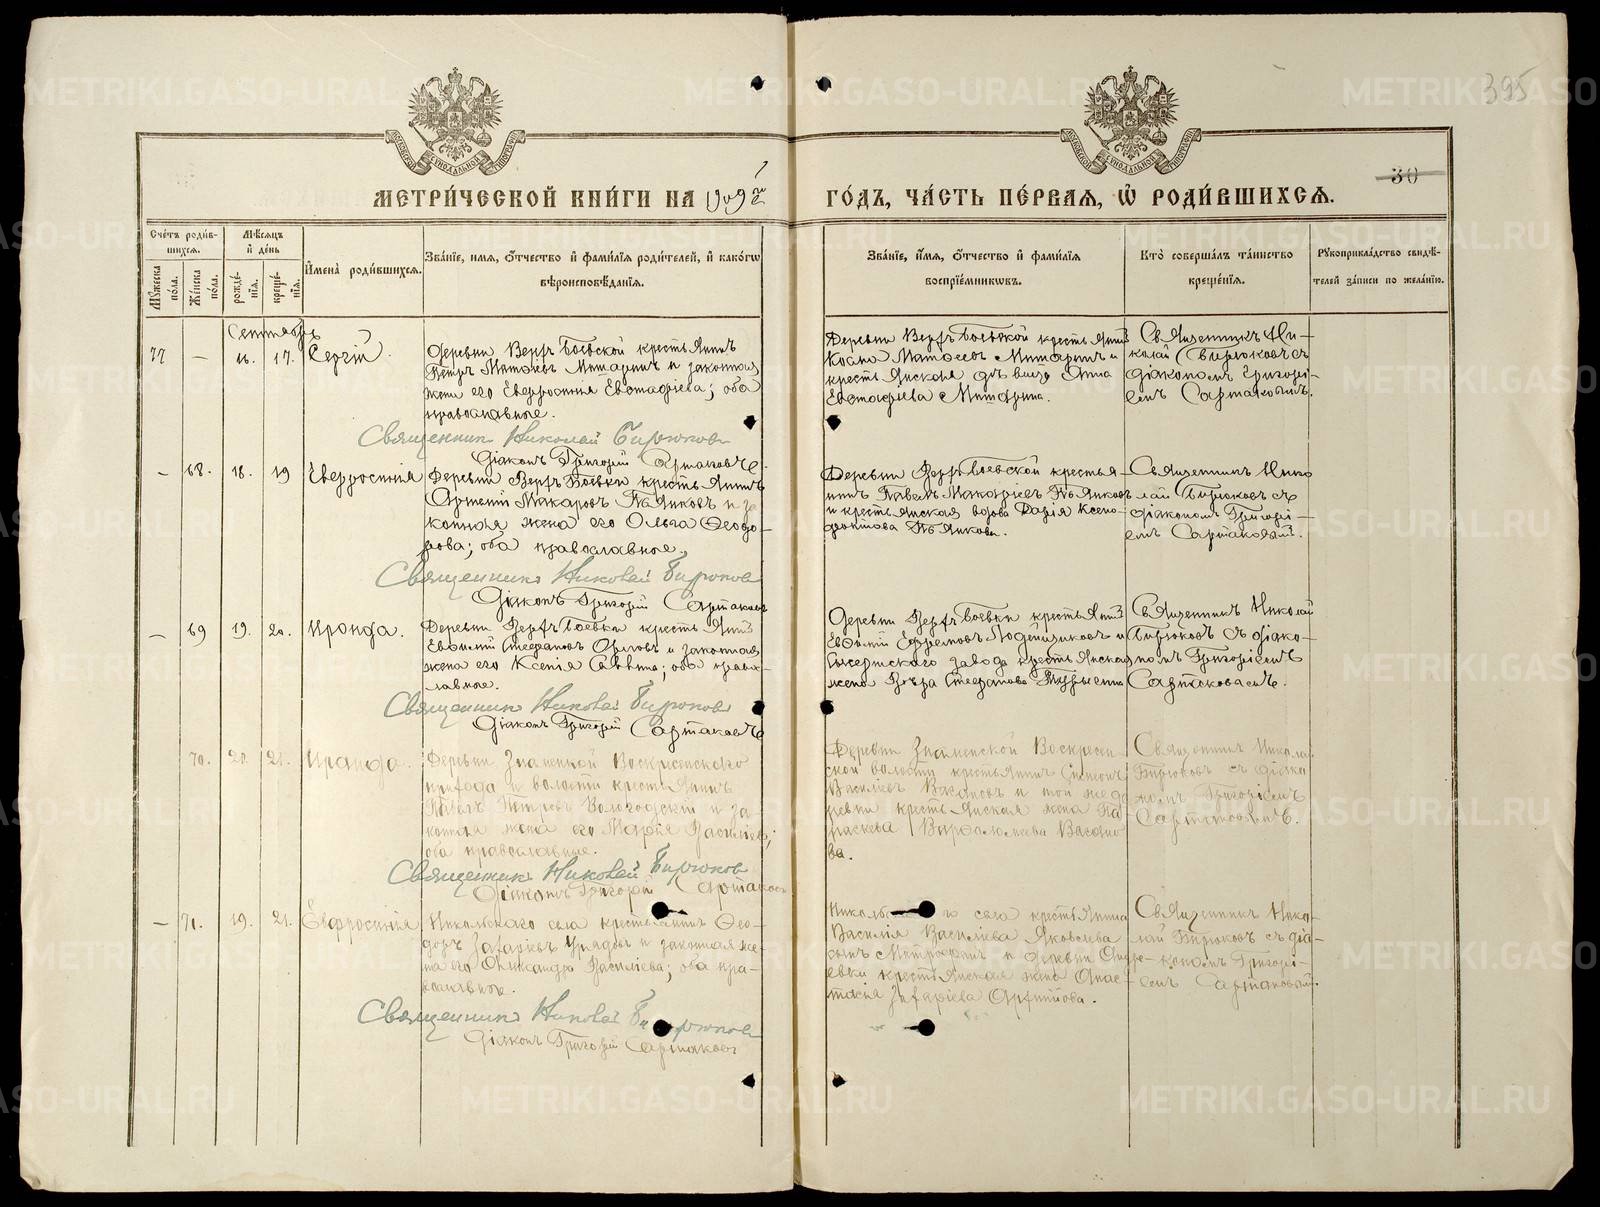 395
30
МЕТРИ́ЧЕСКОЙ КНИ́ГИ НА 1909
ГО́ДЪ, ЧА́СТЬ ПЕ́РВАЯ, Ѡ҆ РОДИ́ВШИХСЯ.
Сче́тъ роди́в-
шихся.
Мѣ́сяцъ
и҆ де́нь
Мꙋ́жеска по́ла.
Же́нска по́ла.
рожде́-
нїѧ.
креще́-
нїѧ.
И҆мена̀ роди́вшихся.
Зва́нїе, и҆мѧ, о҆́тчество и҆ фами́лїѧ роди́телей, и҆ како́гѡ
вѣроисповѣ́данїѧ.
Зва́нїе, и҆́мѧ, о҆́тчество и҆ фами́лїѧ
воспрїе́мниковъ.
Кто̀ соверша́лъ та́инство
креще́нїѧ.
Рꙋкоприкла́дство свидѣ́-
телей за́писи по жела́нїю.
Сентябрь
77
—
16.
17.
Сергій
Деревни Верхъ Боевской крестьянинъ
Петръ Матѳіевъ Митаринъ и законная
жена его Евфросинія Евстафіева; оба
православные.
Священникъ Николай Бирюковъ
Діаконъ Григорій Сартаковъ
Деревни Верхъ Боевской крестьянинъ
Косма Матѳіевъ Митаринъ и
крестьянская дѣвица Анна
Евстафіева Митарина.
Священникъ Ни-
колай Бирюковъ съ
діакономъ Григорі-
емъ Сартаковымъ.
—
68.
18.
19
Евфросинія
Деревни Верхъ Боевки крестьянинъ
Макаровъ Пьянковъ и за-
конная жена его Ольга Ѳеодо-
рова; оба православные.
Священникъ Николай Бирюковъ
Діаконъ Григорій Сартаковъ
Деревни Верхъ Боевской крестья-
нинъ Павелъ Макаріевъ Пьянковъ
и крестьянская вдова Дарія Ксено-
фонтова Пьянкова.
Священникъ Нико-
лай Бирюковъ съ
діакономъ Григорі-
емъ Сартаковымъ.
—
69
19.
20.
Ираида.
Деревни Верхъ Боевки крестьянинъ
Евфимій Стефановъ Орловъ и законная
жена его Ксенія Саввина; оба право-
славные.
Священникъ Николай Бирюковъ
Діаконъ Григорій Сартаковъ
Деревни Верхъ Боевки крестьянинъ
Евфимій Ефремовъ и
Сысертскаго завода крестьянская
жена Вѣра Стефанова
Священникъ Николай
Бирюковъ съ діако-
номъ Григоріемъ
Сартаковымъ.
70.
20.
21.
Ираида.
Деревни Знаменной Воскресенскаго
прихода и волости крестьянинъ
Павелъ Петровъ Вологодскій и за-
конная жена его Марія Васильева;
оба православные.
Священникъ Николай Бирюковъ
Діаконъ Григорій Сартаковъ
Деревни Знаменской Воскресен-
ской волости крестьянинъ Симеонъ
Василіевъ и той же де-
ревни крестьянская жена Па-
раскева Варѳоломеева
ва.
Священникъ Николай
Бирюковъ съ діако-
номъ Григоріемъ
Сартаковымъ.
—
71.
19.
21.
Евфросинія
Никольскаго села крестьянинъ Ѳео-
доръ Захаріевъ и законная же-
на его Александра Василіева; оба пра-
вославные.
Священникъ Николай Бирюковъ
Діаконъ Григорій Сартаковъ
села крестьянина
Василія Василіева Яковлева
сынъ Митрофанъ и деревни
крестьянская жена Анас-
тасія Захаріева
Священникъ Нико-
лай Бирюковъ съ діа-
кономъ Григорі-
емъ Сартаковымъ.
METRIKI.GASO-URAL.RU